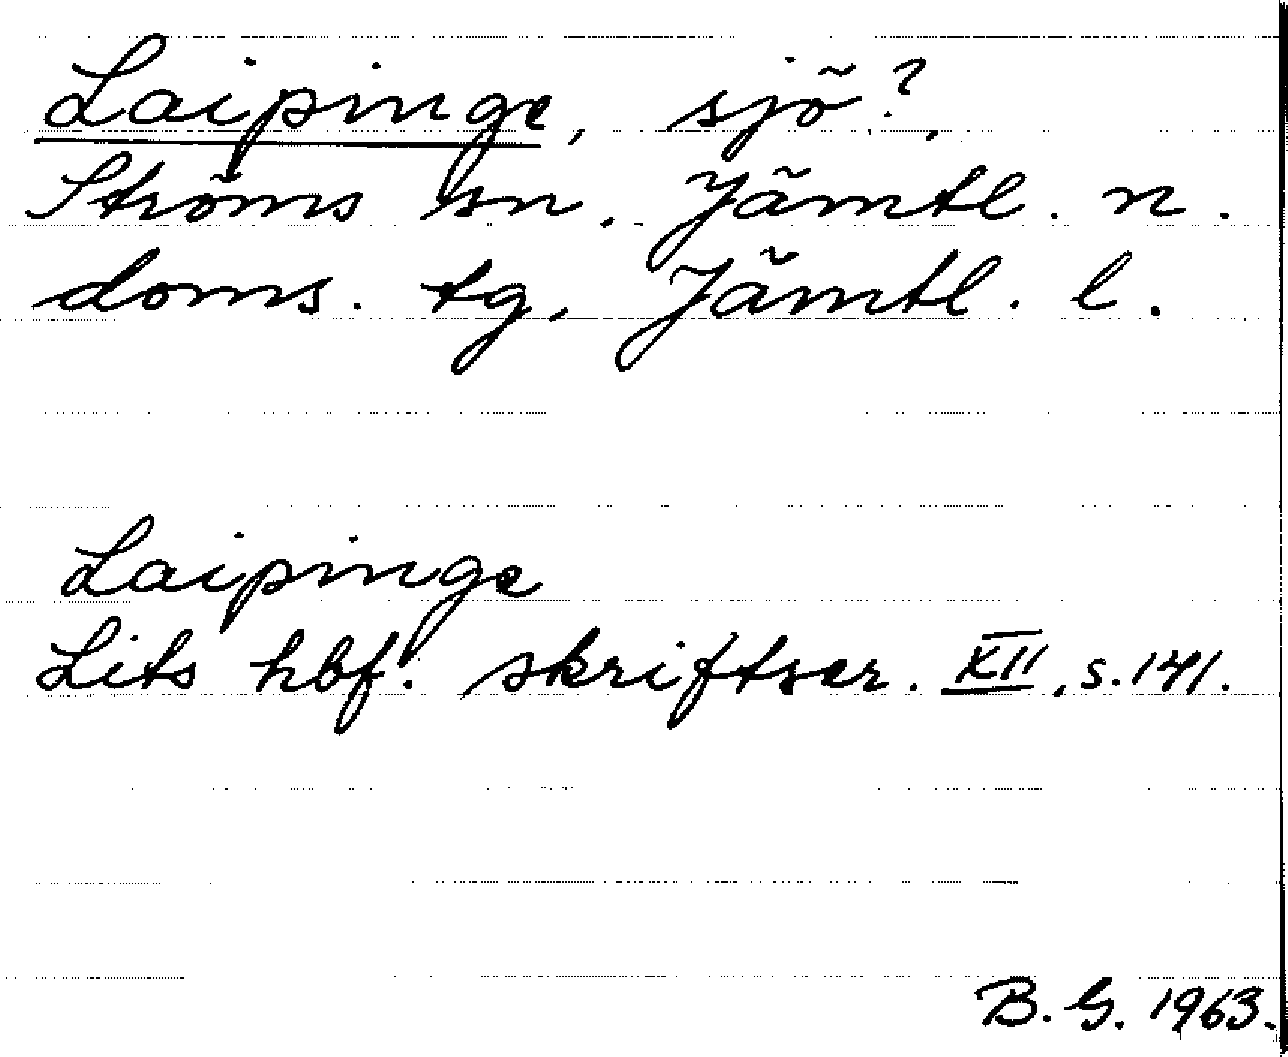 Laipinge, sjö?,
Ströms sn. Jämtl. n.
doms. tg, Jämtl. l.
Laipinge
Lits hbf. skriftser. XII, s. 141.
B. G. 1963.